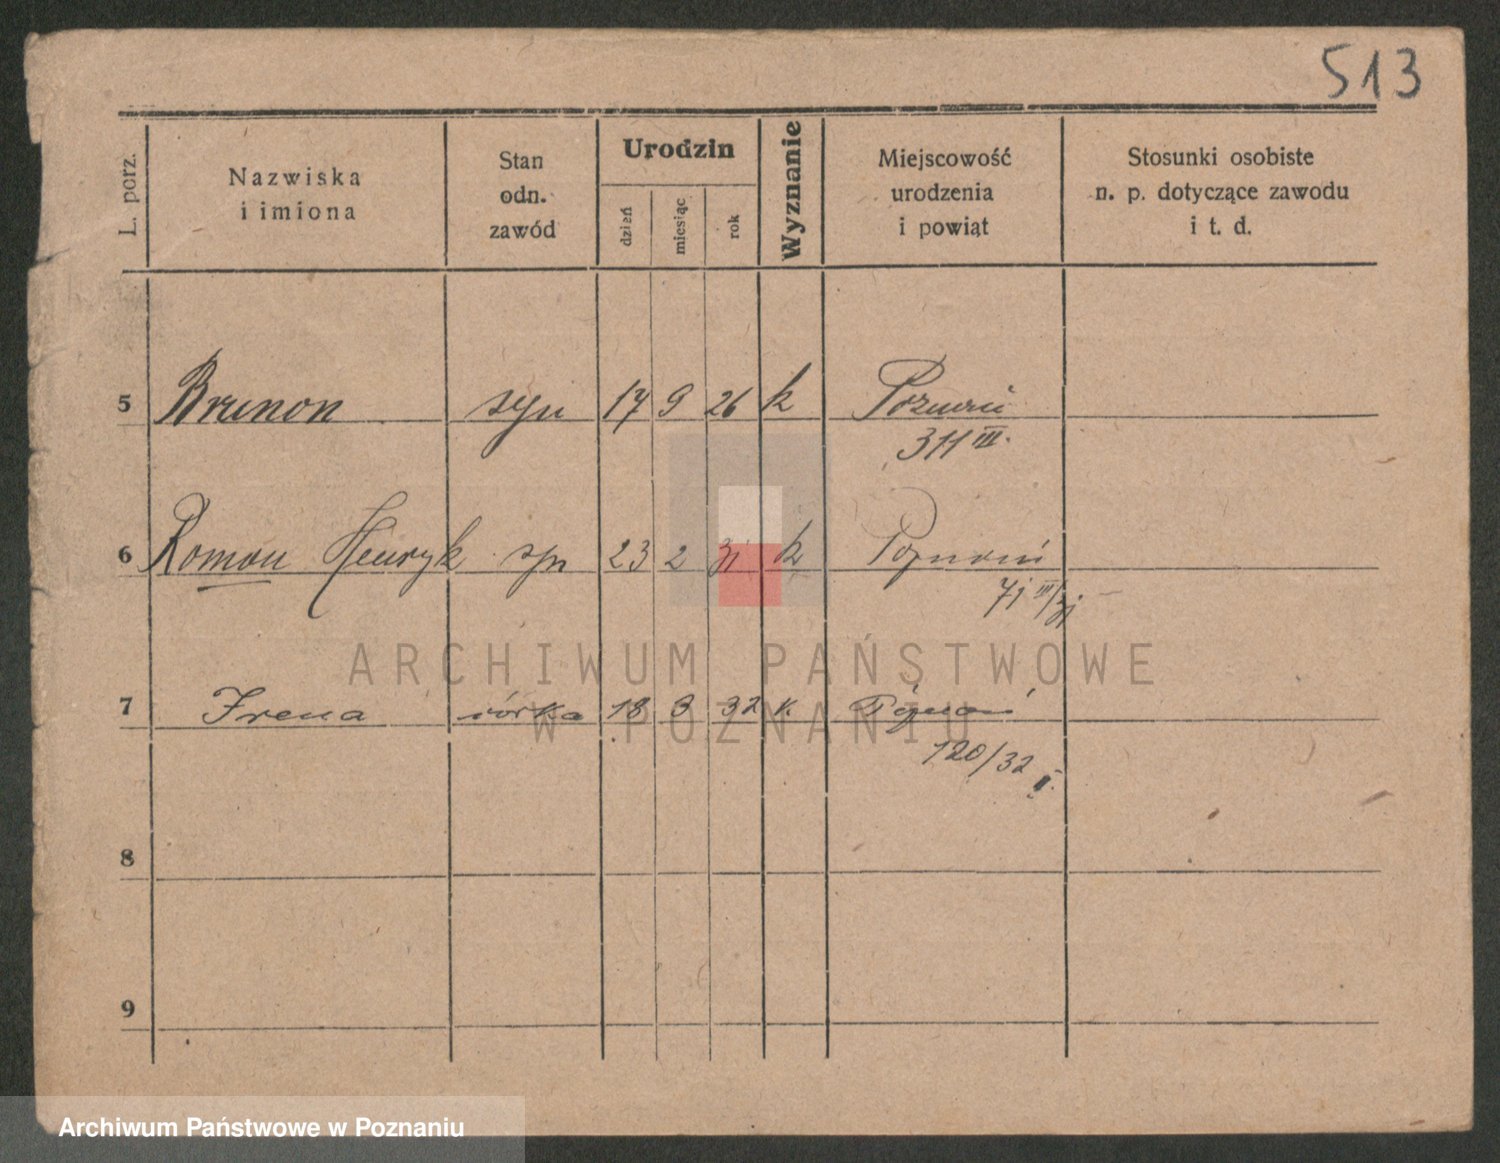 513
L. porz.
Nazwiska
i imiona
Stan
odn.
zawód
Urodzin
dzień
miesiąc
rok
Wyznanie
Miejscowość
urodzenia
i powiąt
Stosunki osobiste
n. p. dotyczące zawodu
i t. d.
5 Brunon syn 17 9 26 k Poznań
311 III.
6 Roman Henryk syn 23 2 31 k Poznań
71 III/31
ARCHIWUM PAŃSTWOWE
7 Irena córka 18 3 32 k. Poznań
W POZNANIU
120/32 II.
8
9
Archiwum Państwowe w Poznaniu